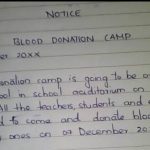 NOTICE
BLOOD DONATION CAMP
20XX
donation camp is going to be
in school auditorium on
All the teachers, students and
to come and donate
ones on 07 December